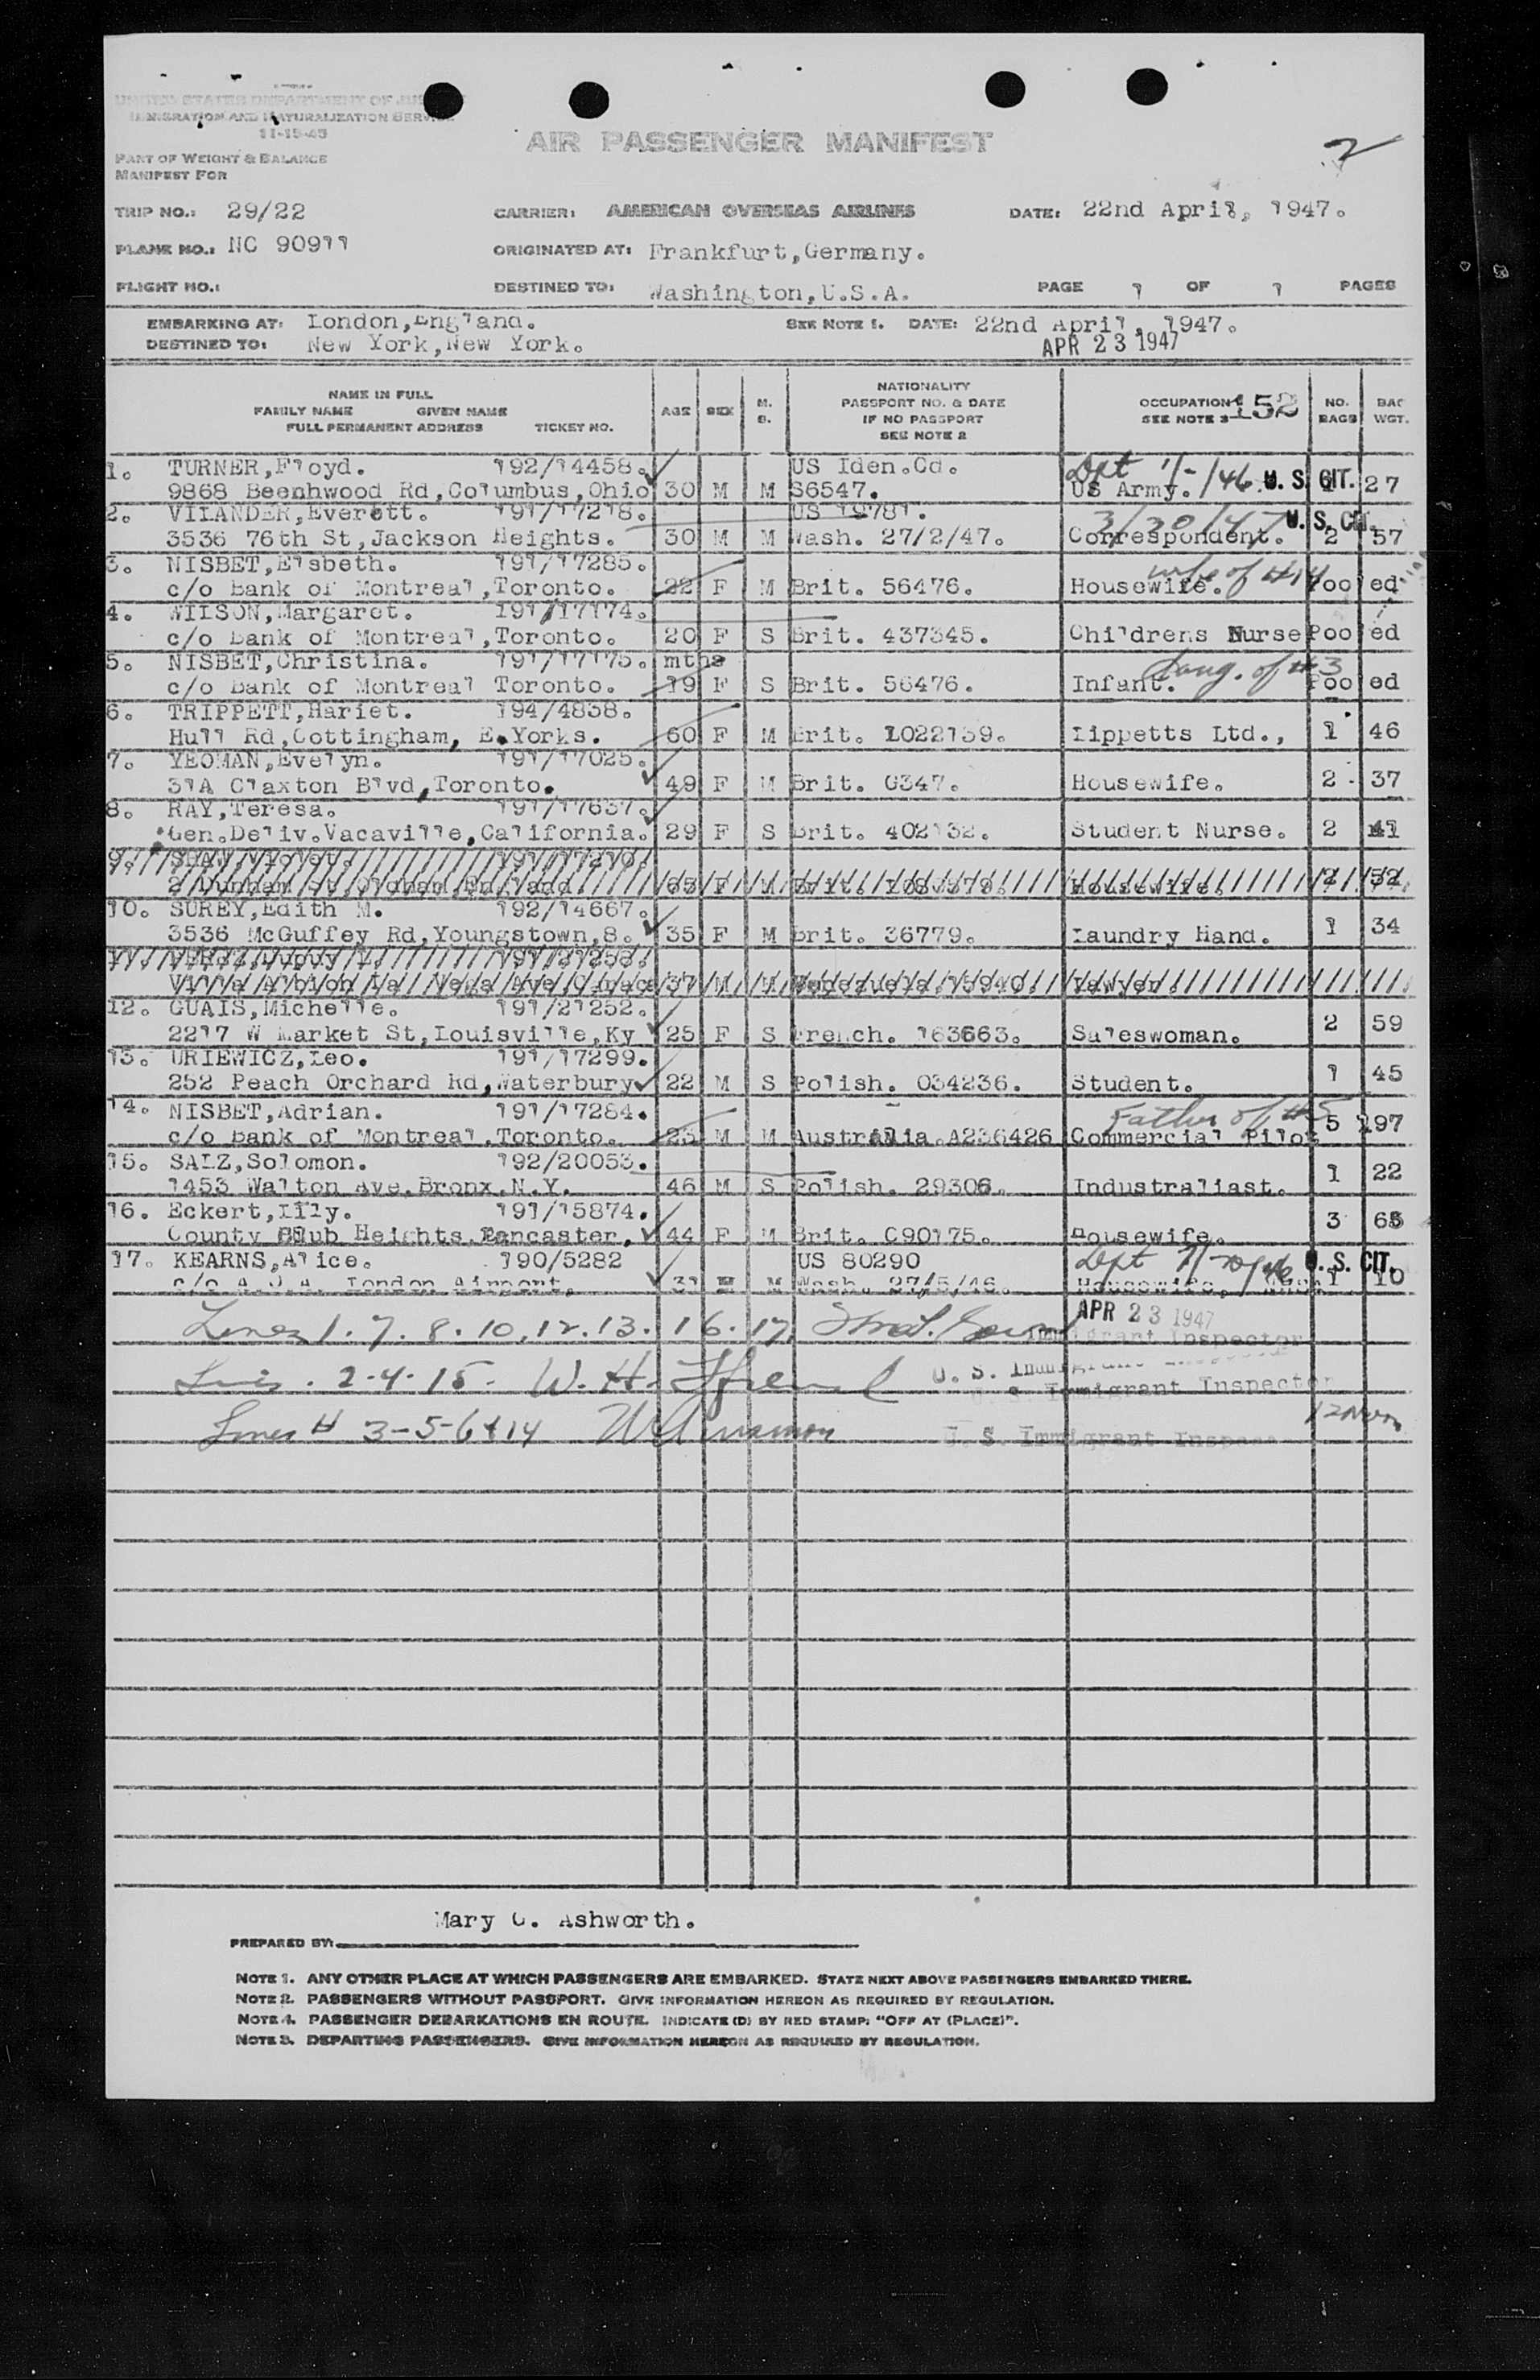 UNITED STATES DEPARTMENT OF JUSTICE
IMMIGRATION AND NATURALIZATION SERVICE
11-15-45
AIR PASSENGER MANIFEST
2
PART OF WEIGHT & BALANCE
MANIFEST FOR
TRIP NO.: 29/22 CARRIER: AMERICAN OVERSEAS AIRLINES DATE: 22nd April, 1947.
PLANE NO.: NC 90911 ORIGINATED AT: Frankfurt,Germany.
FLIGHT NO.: DESTINED TO: Washington,U.S.A. PAGE 1 OF 1 PAGES
EMBARKING AT: London,England. SEE NOTE 1. DATE: 22nd April, 1947.
DESTINED TO: New York,New York. APR 23 1947
NAME IN FULL
FAMILY NAME GIVEN NAME
FULL PERMANENT ADDRESS TICKET NO. AGE SEX M. S. NATIONALITY PASSPORT NO. & DATE IF NO PASSPORT SEE NOTE 2 OCCUPATION SEE NOTE 3 152 NO. BAGS BAG WGT.
1. TURNER,Floyd. 192/14458. US Iden.Cd. Dpt /46 U. S. CIT.
9868 Beenhwood Rd,Columbus,Ohio 30 M M S6547. US Army. 27
2. VILANDER,Everett. 191/17218. US 19781. 3/30/47 U. S. CIT.
3536 76th St,Jackson Heights. 30 M M Wash. 27/2/47. Correspondent. 2 57
3. NISBET,Elsbeth. 191/17285. wife of #14
c/o Bank of Montreal,Toronto. 22 F M Brit. 56476. Housewife. Pooled
4. WILSON,Margaret. 191/17174.
c/o Bank of Montreal,Toronto. 20 F S Brit. 437345. Childrens Nurse Pooled
5. NISBET,Christina. 191/17175. mths Daug. of #3
c/o Bank of Montreal Toronto. 19 F S Brit. 56476. Infant. Pooled
6. TRIPPETT,Hariet. 194/4838.
Hull Rd,Cottingham, E.Yorks. 60 F M Brit. L022139. Lippetts Ltd., 1 46
7. YEOMAN,Evelyn. 191/17025.
31A Claxton Blvd,Toronto. 49 F M Brit. G347. Housewife. 2 37
8. RAY,Teresa. 191/17637.
Gen.Deliv.Vacaville,California. 29 F S Brit. 402132. Student Nurse. 2 41
9. SHAW,Violet. 191/17210.
2 Dunham St,Oldham,England. 65 F M Brit. Housewife. 52
10. SUREY,Edith M. 192/14667.
3536 McGuffey Rd,Youngstown,8. 35 F M Brit. 36779. Laundry Hand. 1 34
11. 191/21258.
Villa Albion La Vega Ave 37 M M Venezuela Lawyer.
12. GUAIS,Michelle. 191/21252.
2217 W Market St,Louisville,Ky 25 F S French. 163663. Saleswoman. 2 59
13. URIEWICZ,Leo. 191/17299.
252 Peach Orchard Rd,Waterbury 22 M S Polish. 034236. Student. 1 45
14. NISBET,Adrian. 191/17284. Father of #5
c/o Bank of Montreal,Toronto. 23 M M Australia.A236426 Commercial Pilot 5 197
15. SALZ,Solomon. 192/20053.
1453 Walton Ave,Bronx,N.Y. 46 M S Polish. 29306. Industraliast. 1 22
16. Eckert,Lily. 191/15874.
County Club Heights,Lancaster, 44 F M Brit. C90175. Housewife. 3 68
17. KEARNS,Alice. 190/5282 US 80290 Dept U. S. CIT.
c/o A.O.A. London Airport, 31 M Wash. 27/5/46. Housewife, 1 10
Lines 1. 7. 8. 10. 12. 13. 16. 17. APR 23 1947
Immigrant Inspector
Lines. 2-4-15- W. H. U. S. Immigrant Inspector
U. S. Immigrant Inspector
Lines # 3-5-6+14 U. S. Immigrant
Mary C. Ashworth.
PREPARED BY:
NOTE 1. ANY OTHER PLACE AT WHICH PASSENGERS ARE EMBARKED. STATE NEXT ABOVE PASSENGERS EMBARKED THERE.
NOTE 2. PASSENGERS WITHOUT PASSPORT. GIVE INFORMATION HEREON AS REQUIRED BY REGULATION.
NOTE 4. PASSENGER DEBARKATIONS EN ROUTE. INDICATE (D) BY RED STAMP: "OFF AT (PLACE)".
NOTE 3. DEPARTING PASSENGERS. GIVE INFORMATION HEREON AS REQUIRED BY REGULATION.